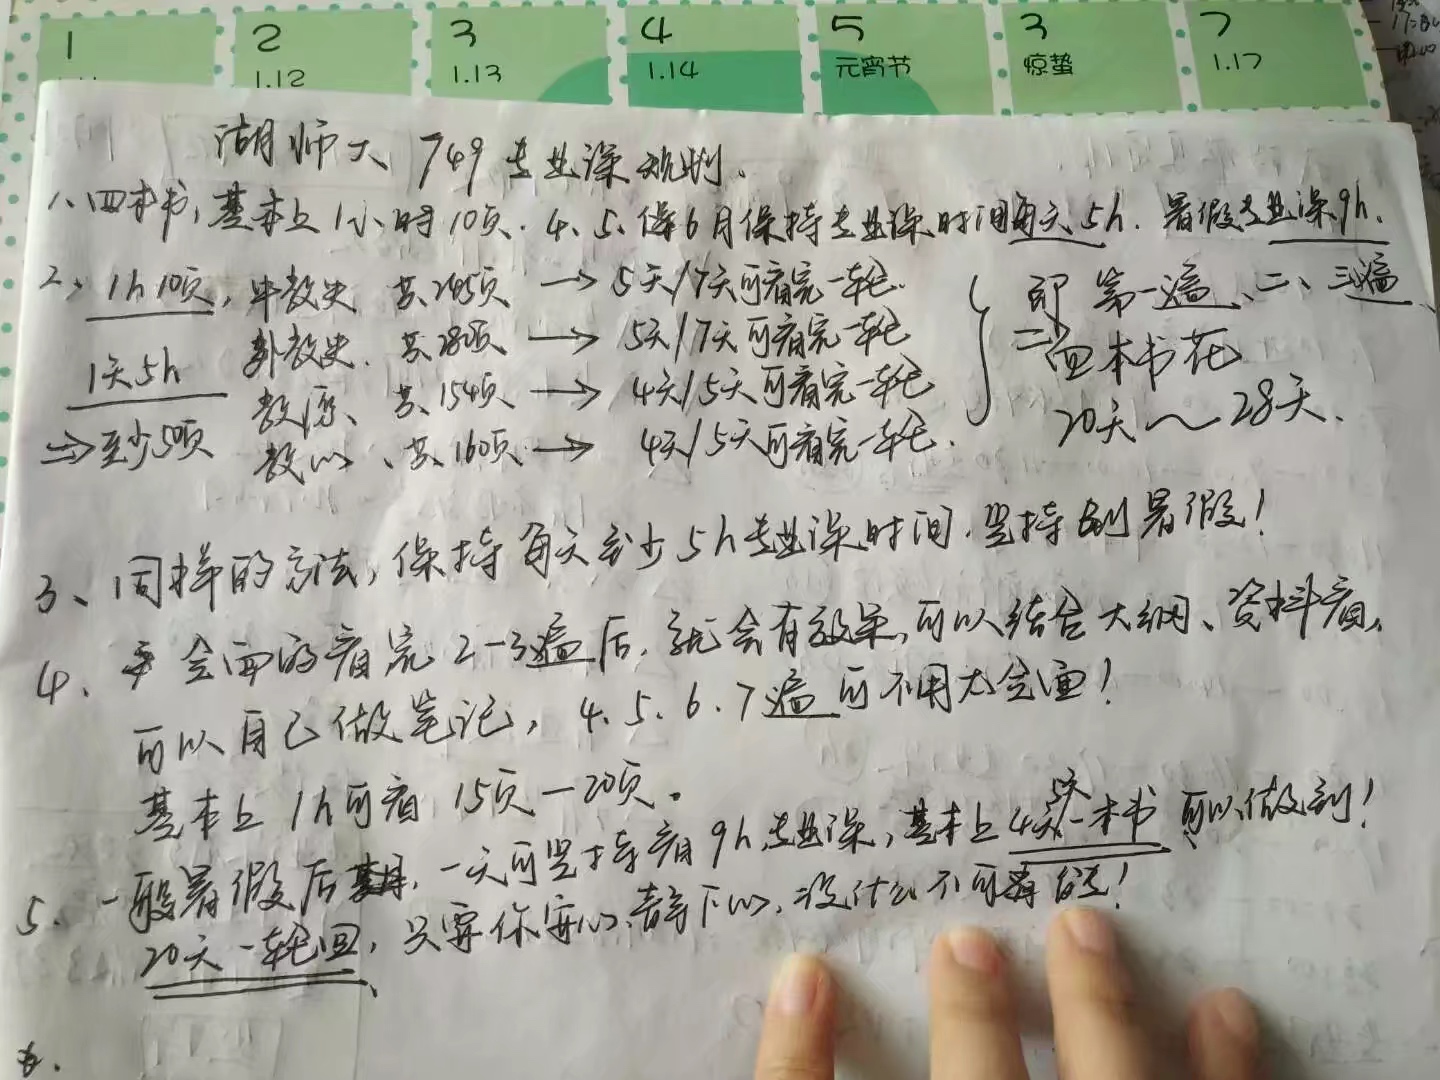 1 2 3 4 5 3 7
1.12 1.13 1.14 元宵节 惊蛰 1.17
湖师大 749专业课规划.
1、四本书,基本上1小时10页. 4、5、6月保持专业课时间每天5h. 暑假专业课9h.
2、1h10页, 中教史 共 页 → 5天/7天可看完一轮.
外教史. 共280页 → 5天/7天可看完一轮
1天5h
教原、共154页 → 4天/5天可看完一轮
⇒至少50页
教心、共160页 → 4天/5天可看完一轮.
即 第一遍、二、三遍、
四本书花
20天~28天.
3、同样的方法,保持每天至少5h专业课时间.坚持到暑假!
4、全面的看完2-3遍后.就会有效果,可以结合大纲、资料看.
可以自己做笔记, 4.5.6.7遍可不用太全面!
基本上1h可看15页-20页.
5、一般暑假后, 一天可坚持看9h专业课,基本上4天5天一本书 可以做到!
20天一轮回, 只要你安心、静下心,没什么不可能!